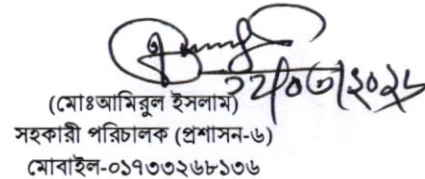 (মোঃআমিরুল ইসলাম)
সহকারী পরিচালক (প্রশাসন-৬)
মোবাইল-০১৭৩৩২৬৮১৩৬